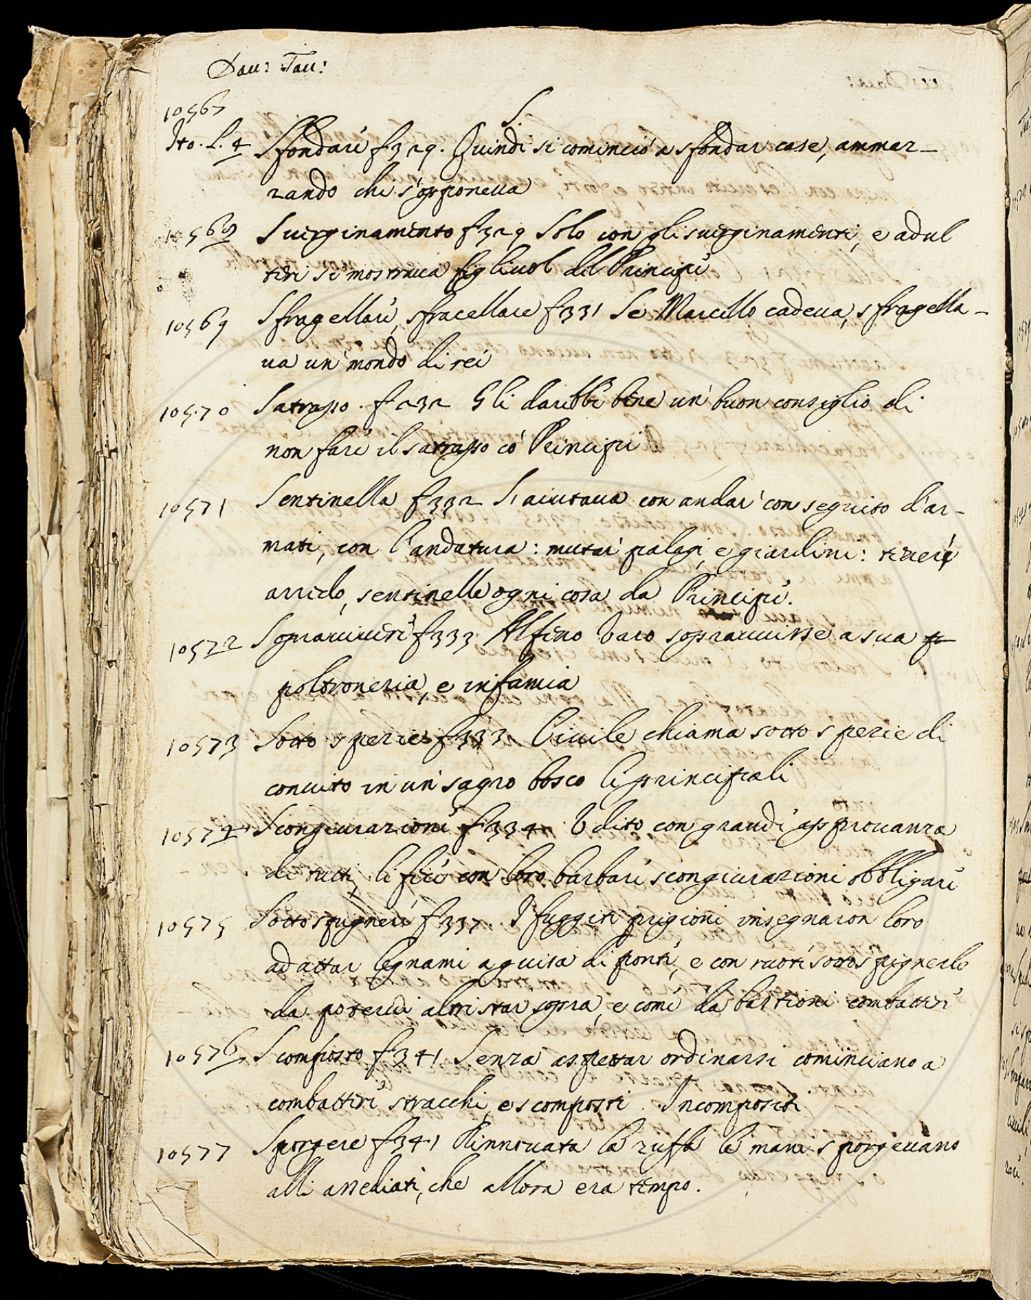 Dav: Tac:
S.
10567
Sto. L. 4 Sfondare f 329. Quindi si cominciò a sfondar case, ammaz-
zando chi s'opponeva
10568 Supginamento f 329 Solo con gli supginamenti, e adul
teri si mostrava figliuol del Principe
10569 Sfragellare, sfracellare f 331 Se Marcello cadeva, sfragella-
va un mondo di rei
10570 Satrapo. f 232 Gli darebbe bene un buon consiglio di
non fare il satrapo co Principi
10571 Sentinella f 332 S'aiutava con andar con seguito d'ar-
mati, con l'andatura: mutar palagi, e giardini: tenere
arrido, sentinelle ogni cosa da Principe.
10572 Sopravivere f 333 Alfeno Varo sopravvisse a sua
poltroneria, e infamia
10573 Sotto spezie f 333. Civile chiama sotto spezie di
convito in un sagro bosco li principali
10574 Scongiurazione f 334. Udito con grandi approvanza
di tutti, li fece con loro barbare scongiurazioni obbligare
10575 Sottospignere f 337. I fuggiti prigioni insegnaron loro
adattar legnami a guisa di ponti, e con ruote sottospignerlo
da potervi altri star sopra, e come da bastioni combattere
10576 Scomposto f 341 Senza aspettar ordinarsi cominciano a
combattere stracchi, e scomposti. Incompositi
10577 Sporgere f 341 Rinnovata la zuffa le mani sporgevano
alli assediati, che allora era tempo.